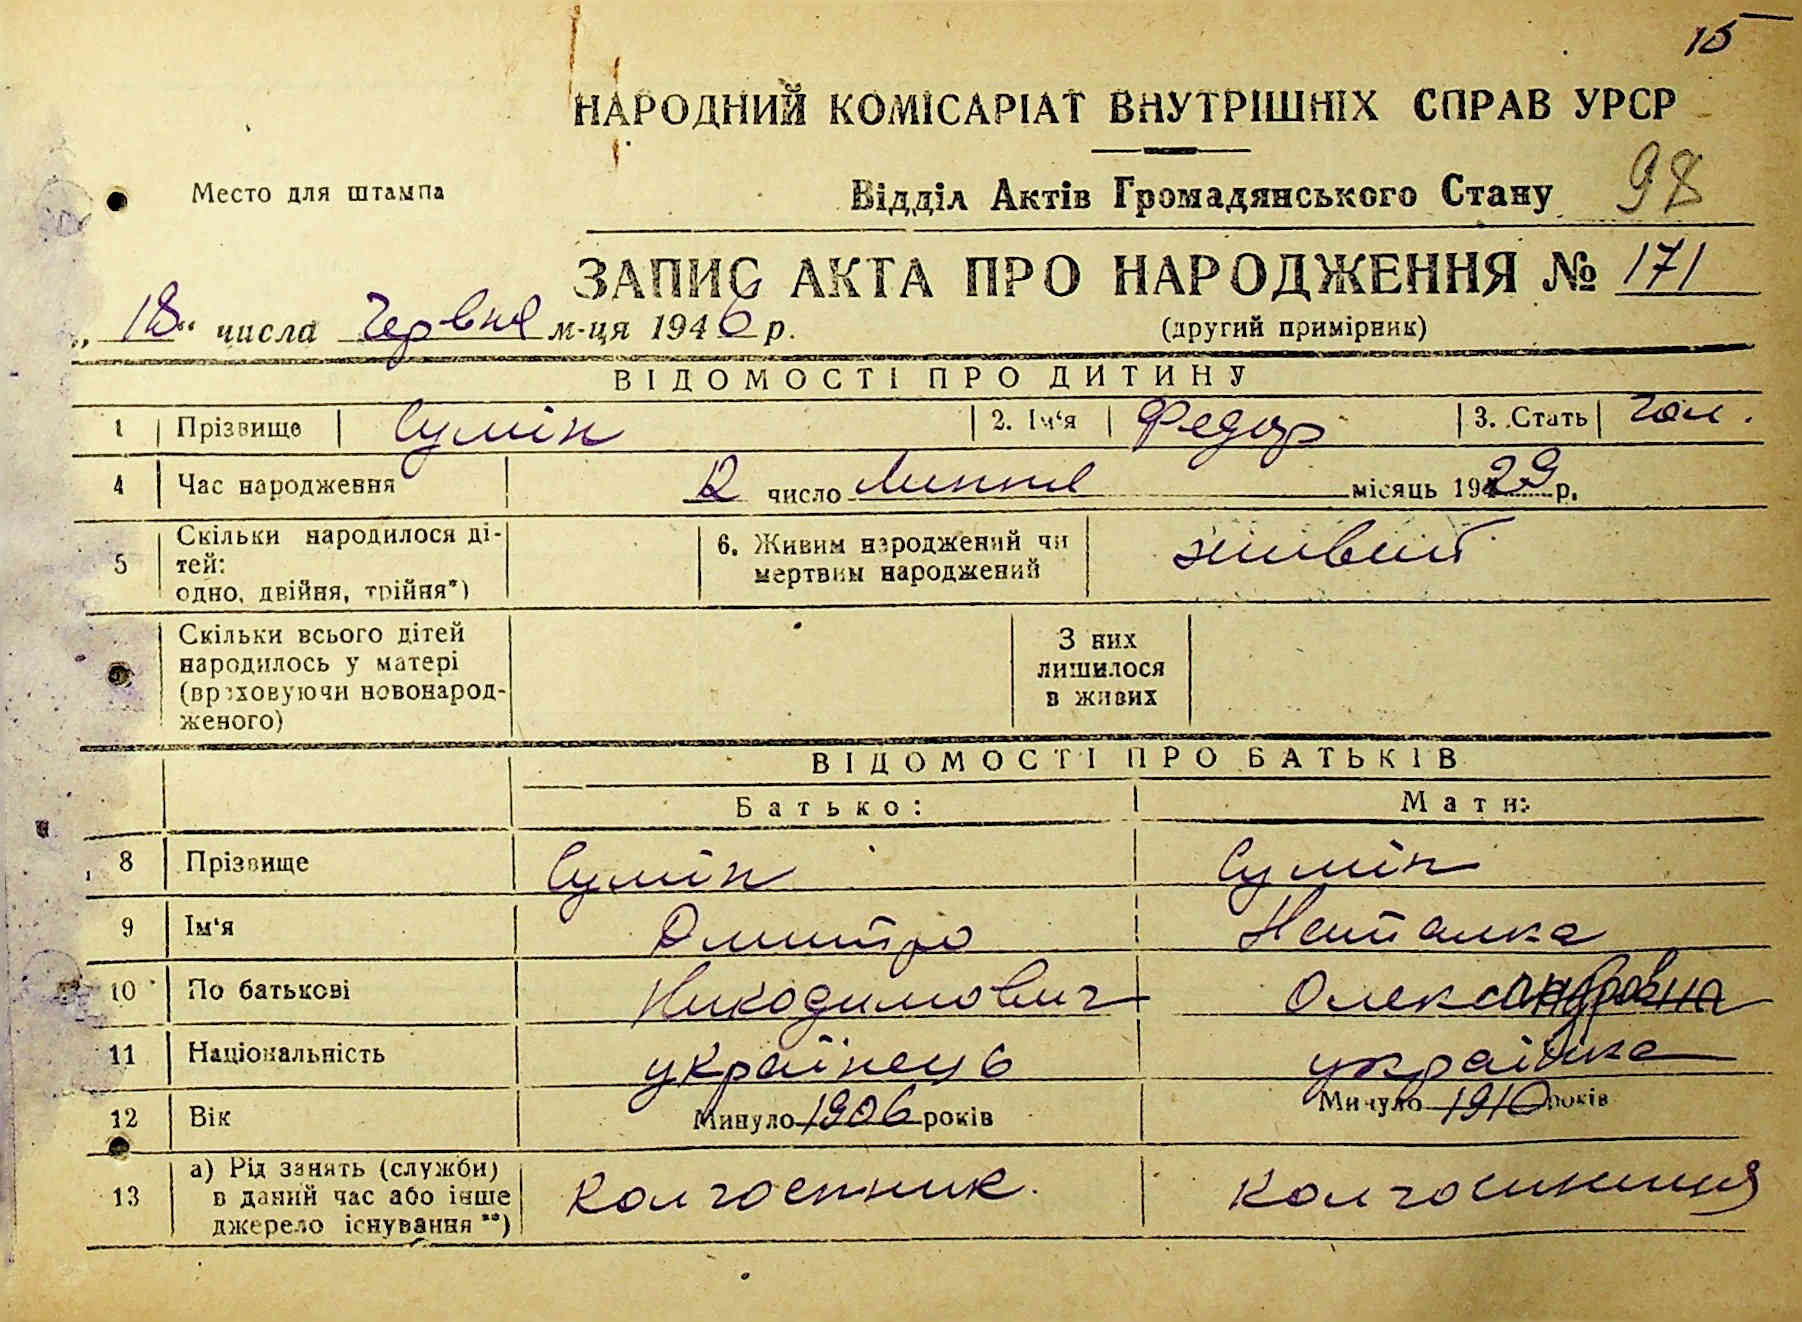 15
НАРОДНИЙ КОМІСАРІАТ ВНУТРІШНІХ СПРАВ УРСР
Место для штампа
Відділ Актів Громадянського Стану 98
ЗАПИС АКТА ПРО НАРОДЖЕННЯ № 171
„18“ числа Червня м-ця 1946 р.
(другий примірник)
ВІДОМОСТІ ПРО ДИТИНУ
1 Прізвище Сумін 2. Ім‘я Федор 3. Стать чол.
4 Час народження 12 число Липня місяць 1929 р.
5 Скільки народилося ді-
тей:
одно, двійня, трійня*)
6. Живим народжений чи
мертвим народжений
живий
Скільки всього дітей
народилось у матері
(враховуючи новонарод-
женого)
З них
лишилося
в живих
ВІДОМОСТІ ПРО БАТЬКІВ
Батько: Мати:
8 Прізвище Сумін Сумін
9 Ім‘я Дмитро Наталка
10 По батькові Никодимович Олександровна
11 Національність українець українка
12 Вік Минуло 1906 років Минуло 1910 років
13 а) Рід занять (служби)
в даний час або інше
джерело існування **)
колгоспник. колгоспниця